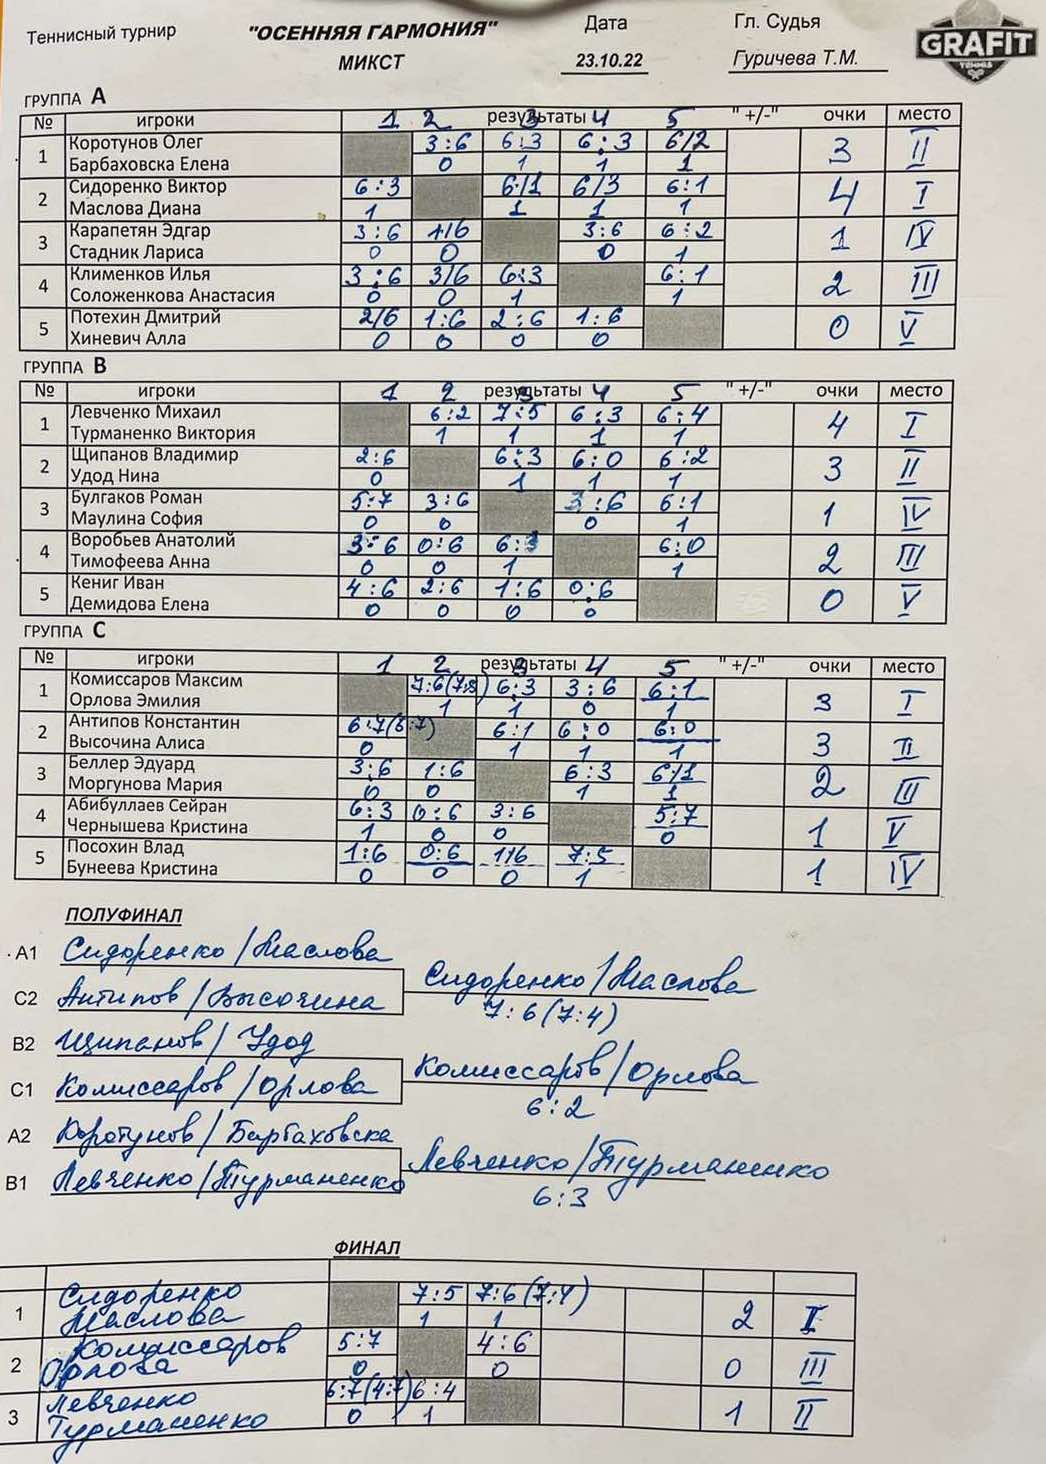 Теннисный турнир "ОСЕННЯЯ ГАРМОНИЯ" Дата Гл. Судья
МИКСТ 23.10.22 Гуричева Т.М.
GRAFIT
TENNIS
ГРУППА А
№ игроки 1 2 результаты 3 4 5 "+/-" очки место
1 Коротунов Олег 3:6 6:3 6:3 6/2 3 II
Барбаховска Елена 0 1 1 1
2 Сидоренко Виктор 6:3 6/1 6/3 6:1 4 I
Маслова Диана 1 1 1 1
3 Карапетян Эдгар 3:6 1/6 3:6 6:2 1 IV
Стадник Лариса 0 0 0 1
4 Клименков Илья 3:6 3/6 6:3 6:1 2 III
Соложенкова Анастасия 0 0 1 1
5 Потехин Дмитрий 2/6 1:6 2:6 1:6 0 V
Хиневич Алла 0 0 0 0
ГРУППА В
№ игроки 1 2 результаты 3 4 5 "+/-" очки место
1 Левченко Михаил 6:2 7:5 6:3 6:4 4 I
Турманенко Виктория 1 1 1 1
2 Щипанов Владимир 2:6 6:3 6:0 6:2 3 II
Удод Нина 0 1 1 1
3 Булгаков Роман 5:7 3:6 3:6 6:1 1 IV
Маулина София 0 0 0 1
4 Воробьев Анатолий 3:6 0:6 6:3 6:0 2 III
Тимофеева Анна 0 0 1 1
5 Кениг Иван 4:6 2:6 1:6 0:6 0 V
Демидова Елена 0 0 0 0
ГРУППА С
№ игроки 1 2 результаты 3 4 5 "+/-" очки место
1 Комиссаров Максим 7:6(7:5) 6:3 3:6 6:1 3 I
Орлова Эмилия 1 1 0 1
2 Антипов Константин 6:7( :7) 6:1 6:0 6:0 3 II
Высочина Алиса 0 1 1 1
3 Беллер Эдуард 3:6 1:6 6:3 6/1 2 III
Моргунова Мария 0 0 1 1
4 Абибуллаев Сейран 6:3 0:6 3:6 5:7 1 V
Чернышева Кристина 1 0 0 0
5 Посохин Влад 1:6 0:6 1/6 7:5 1 IV
Бунеева Кристина 0 0 0 1
ПОЛУФИНАЛ
А1 Сидоренко/Маслова
Сидоренко/Маслова
С2 Антипов/Высочина
7:6(7:4)
В2 Щипанов/Удод
Комиссаров/Орлова
С1 Комиссаров/Орлова
6:2
А2 Коротунов/Барбаховска
Левченко/Турманенко
В1 Левченко/Турманенко
6:3
ФИНАЛ
1 Сидоренко 7:5 7:6(7:4) 2 I
Маслова 1 1
2 Комиссаров 5:7 4:6 0 III
Орлова 0 0
3 Левченко 6:7(4:7) 6:4 1 II
Турманенко 0 1